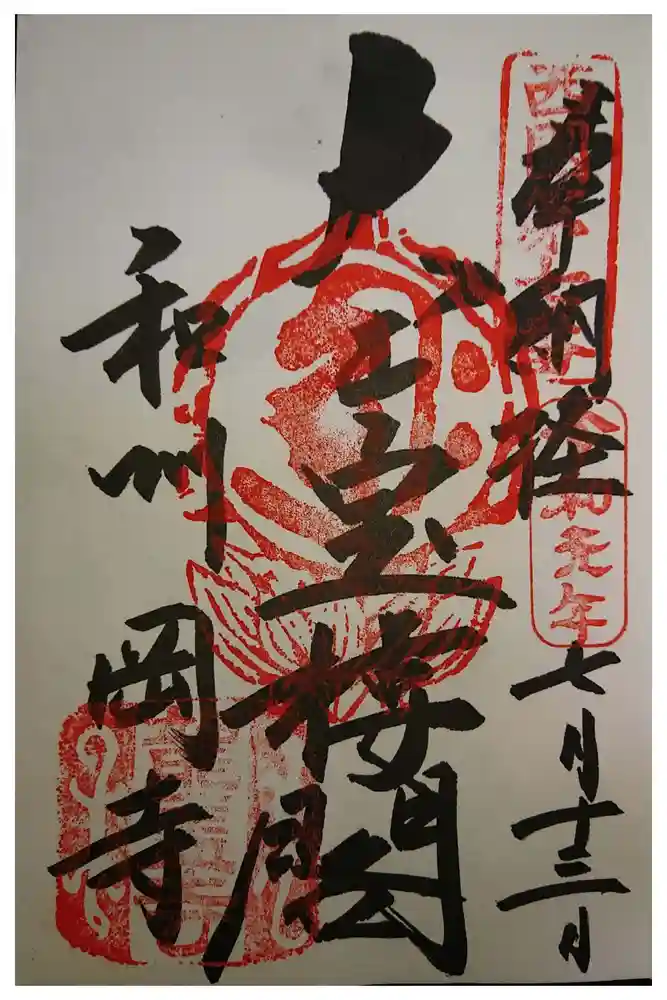 奉納経
西国第七番
令和元年
七月十三日
大士宝楼閣
和州
岡寺